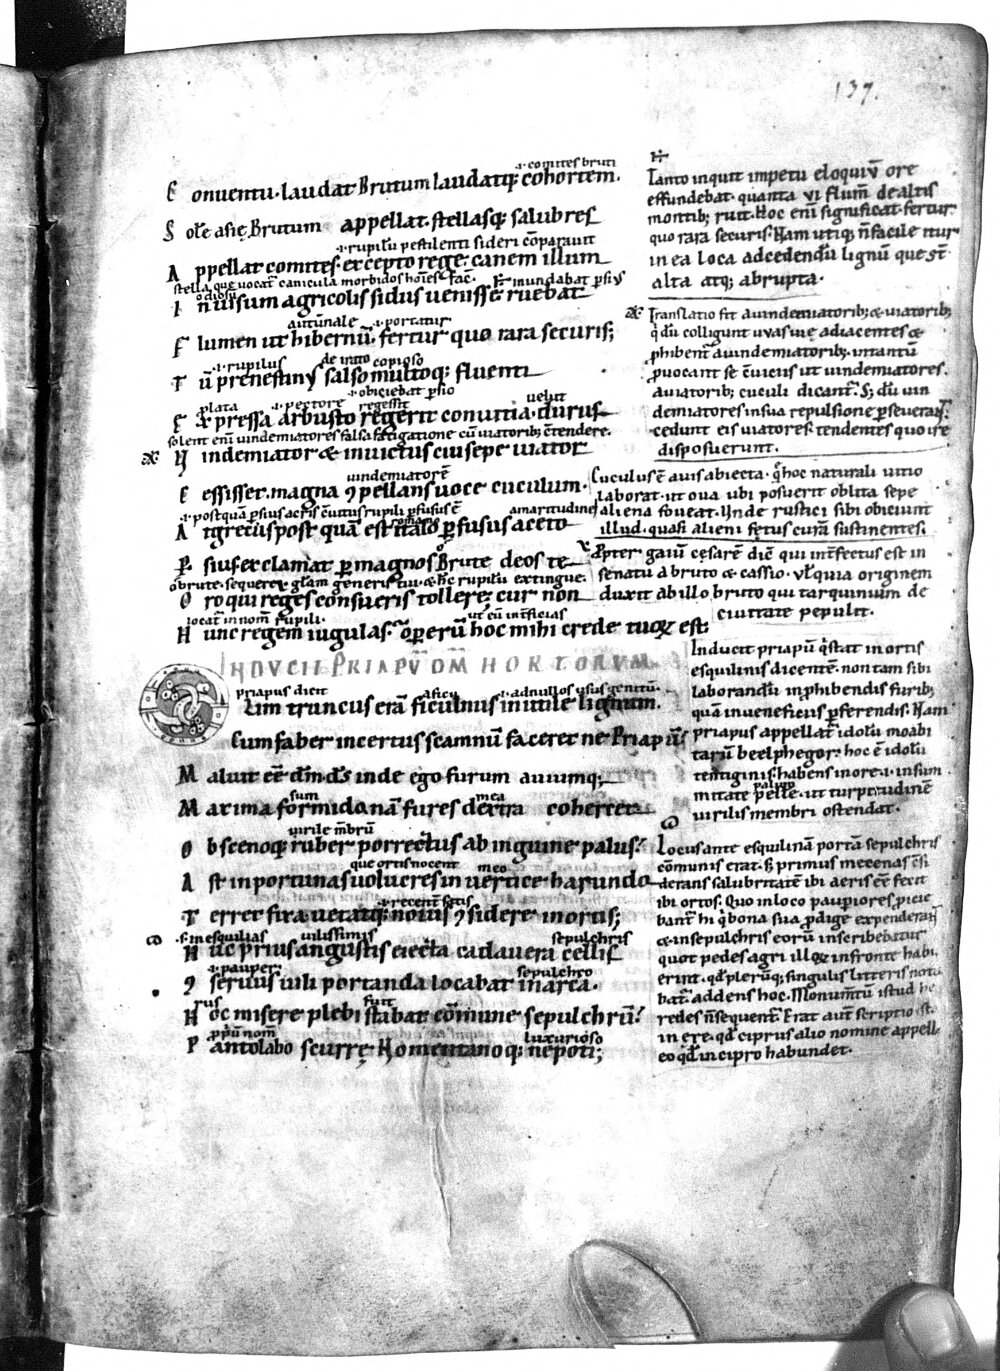 137.
.i. comites bruti
Conuentu. laudat Brutum laudatq; cohortem.
Solē asię Brutum appellat. stellasq; salubres
.i. rupiliū pestilenti sideri cōparauit
Appellat comites. excepto rege; canem illum
stella que uocat᷑ canicula morbidos hoīes fac̄. inundabat ꝑsiꝰ
odiosū
Inuisum agricolis sidus uenisse; ruebat
autūnale .i. portatur
Flumen ut hibernū. fertur quo rara securis;
.i. rupilus copioso
Tū prenestinꝰ salso multoq; fluenti
.i. obiciebat ꝑsio
plata .i. pectore regessit uelut
Expressa arbusto regerit conuitia. durus
solent enī uindemiatores salsa fatigatione cū uiatorib; c̄tendere.
Uindemiator & inuictus cui sepe uiator
uindemiatorē
Cessisset. magna ꝯpellans uoce cuculum.
.i. postquā amaritudine
At grecus postquā est italo ꝑfusus aceto
Persius exclamat ꝑ magnos Brute deos te
o brute. sequere glam generis tui. & hc̄ rupiliū extingue.
Oro qui reges consueris tollere; cur non
iocat᷑ in nom̄ rupili. ut eū int̄ficias
Hunc regem iugulas. oꝑerū hoc mihi crede tuoꝝ est.
INDUCIT PRIAPŪ DM̄ HORTORUM
priapus dicit .i. ad nullos usus genitū.
Olim truncus erā ficulnus inutile lignum.
Cum faber incertus scamnū faceret ne Priapū?
Maluit eē dm̄. ds̄ inde ego furum auiumq;
sum mea
Maxima formido. nā fures dextra cohercet
uirile mbrū
Obscenoq; ruber porrectus ab inguine palus?
que ortis nocent meo
Ast inportunas uolucres in uertice harundo
.i. recent᷑ satis
Terret fixa uetatq; nouis ꝯsidere in ortis;
.s. in esquilias uilissimis sepulchris
Huc prius angustis eiecta cadauera cellis
.i. pauper sepulchro
ꝯseruus uili portanda locabat in arca.
rus fuit
Hoc misere plebi stabat cōmune sepulchrū?
ꝓpriū nom̄ luxurioso
Pantolabo scurrę Nomentanoq; nepoti;
Tanto inquit impetu eloquiū ore
effundebat. quanta ui flum̄ de altis
montib; ruit. Hoc enī significat fertur
quo rara securis. Nam utiq; n̄ facile itur
in ea loca ad cedendū lignū que st̄
alta atq; abrupta.
Translatio fit a uindemiatorib; & uiatorib;
q̇ dū colligunt uuas uię adiacentes &
ꝓhibent᷑ a uindemiatorib; irritantū
ꝓuocant se c̄uiciis ut uindemiatores.
a uiatorib; cuculi dicant᷑. S; dū uin
demiatores in sua repulsione ꝑseuerāt.
cedunt eis uiatores. tendentes quo ire
disposuerunt.
Cuculus ē auis abiecta. q̇ hoc naturali uitio
laborat. ut oua ubi posuerit oblita sepe
aliena foueat. Unde rustici sibi obiciunt
illud. quasi alieni fętus curā sustinentes.
Ppter gaiū cesarē dic̄ qui int̄fectus est in
senatu a bruto & cassio. ul̄ quia originem
duxit ab illo bruto qui tarquinium de
ciuitate pepulit.
Inducit priapū q̇ stat in ortis
esquilinis dicentē. non tam sibi
laborandū in ꝓhibendis furib;
quā in ueneficiis ꝑferendis. Nam
priapus appellat᷑ idolū moabi
tarū beelphegor. hoc ē idolū
tentiginis. habens in ore .i. in sum
mitate pelle. ut turpitudinē
uirilis membri ostendat.
Locus ante esquilinā portā sepulchris
cōmunis erat. s; primus mecenas
salubritatē ibi aeris eē fecit
ibi ortos. Quo in loco pauꝑiores
bant᷑ hi q̇ bona sua ꝓdige expenderant
& in sepulchris eorū inscribebatur
quot pedes agri illoꝝ in fronte habu
erint. qd̄ plerūq; singulis litteris nota
bat᷑. addens hoc. Monumtū istud he
redes n̄ sequent᷑. Erat aut̄ scriptio ist
in ere. qd̄ ciprus alio nomine appell
eo qd̄ in cipro habundet.